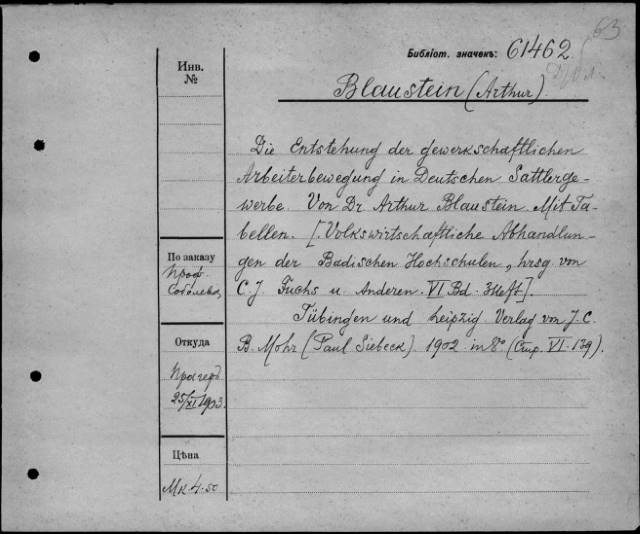 63
Библіот. значекъ: 61462
Инв.
№
Blaustein (Arthur).
Die Entstehung der gewerkschaftlichen
Arbeiterbewegung in Deutschen Sattlerge-
werbe. Von Dr Arthur Blaustein. Mit Ta-
bellen. [Volkswirtschaftliche Abhandlun-
gen der Badischen Hochschulen, hrsg. von
C. J. Fuchs u. Anderen. VI Bd. 3 Heft].
Tübingen und Leipzig. Verlag von J. C.
B. Mohr (Paul Siebeck). 1902. in 8º (VI. 139).
По заказу
проф.
Соболева
Откуда
25/XI 1903.
Цѣна
Мк. 4.50